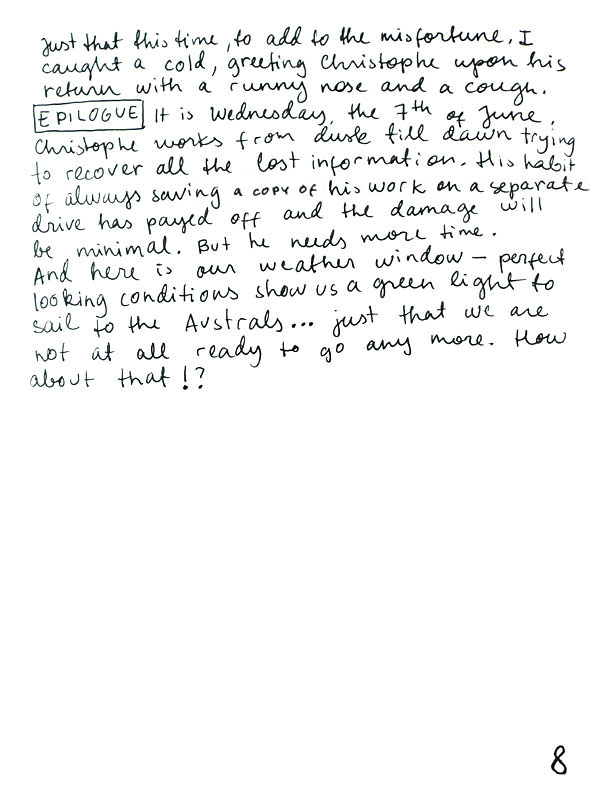 just that this time, to add to the misfortune, I
caught a cold, greeting Christophe upon his
return with a runny nose and a cough.
EPILOGUE It is Wednesday, the 7th of June.
Christophe works from dusk till dawn trying
to recover all the lost information. His habit
of always saving a copy of his work on a separate
drive has payed off and the damage will
be minimal. But he needs more time.
And here is our weather window – perfect
looking conditions show us a green light to
sail to the Australs... just that we are
not at all ready to go any more. How
about that!?
8